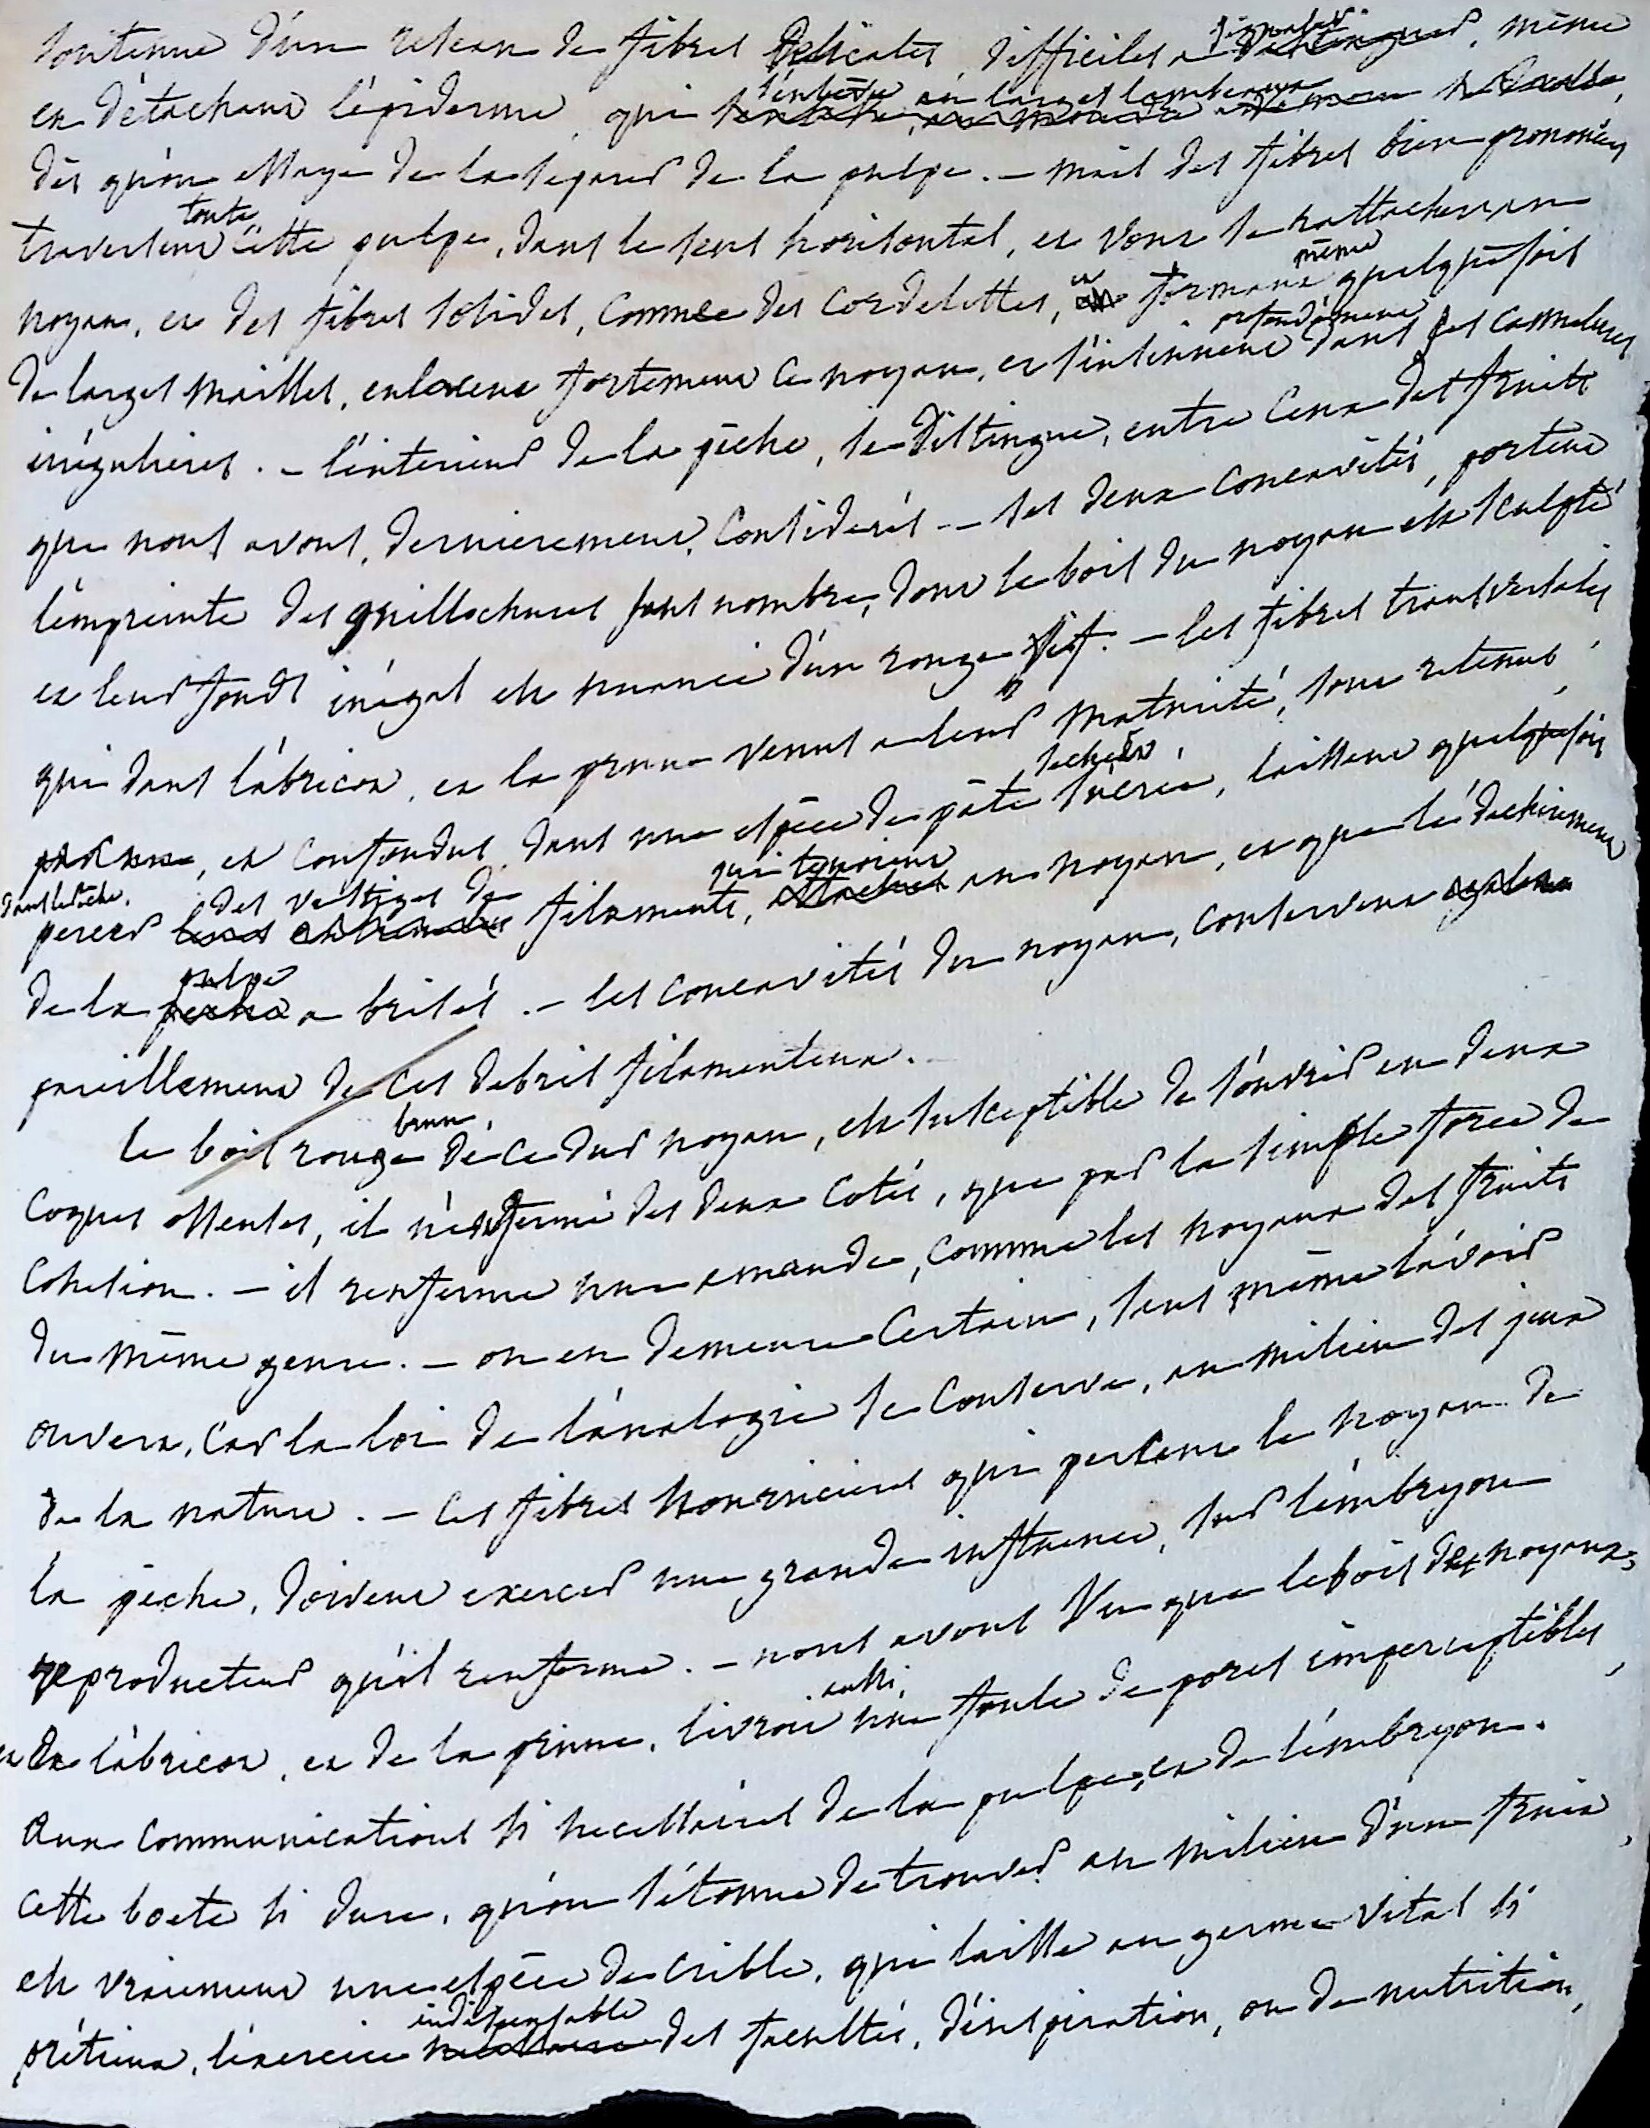 soutenue d'un reseau de fibres délicates, difficiles a signaler, même
en détachant l'épiderme, qui s'enlève en larges lambeaux
dès qu'on essaye de la séparer de la pulpe. — mais des fibres bien prononcées
traversent toute cette pulpe, dans le sens horisontal, et vont se rattacher au
noyau, et des fibres solides, comme des cordelettes, et formant même quelquefois
de larges mailles, enlacent fortement ce noyau, et s'insinuent profondément dans ses cannelures
irrégulières. — l'interieur de la pêche, se distingue, entre ceux des fruits
que nous avons, dernierement, considerés — ses deux concavités, portent
l'empreinte des guillochures sans nombre, dont le bois du noyau est sculpté
et leur fonds inégal est nuancé d'un rouge vif. — les fibres transversales
qui dans l'abricot, et la prune venus a leur maturité, sont retenus,
et confondus, dans une espèce de pâte sucrée, laissent quelquefois
percer dans la pêche, des vestiges de filaments, qui tenoient au noyau, et que le déchirement
de la pulpe a brisés. — les concavités du noyau, conservent
pareillement de ces debris filamenteux.
le bois rouge brun, de ce dur noyau, est susceptible de s'ouvrir en deux
coques osseuses, il n'est fermé des deux cotés, que par la simple force de
cohesion. — il renferme une amande, comme les noyaux des fruits
du même genre. — on en demeure certain, sans même l'avoir
ouvert, car la loi de l'analogie se conserve, au milieu des jeux
de la nature. — les fibres nourricieres qui percent le noyau de
la pêche, doivent exercer une grande influence, sur l'embryon
reproducteur qu'il renferme. — nous avons vu que le bois des noyaux,
de l'abricot, et de la prune, livroit aussi, une foule de pores imperceptibles,
aux communications si necessaires de la pulpe, et de l'embryon.
cette boete si dure, qu'on s'étonne de trouver au milieu d'un fruit,
est vraiment une espèce de crible, qui laisse au germe vital si
prétieux, l'exercice indispensable des facultés, d'inspiration, ou de nutrition,